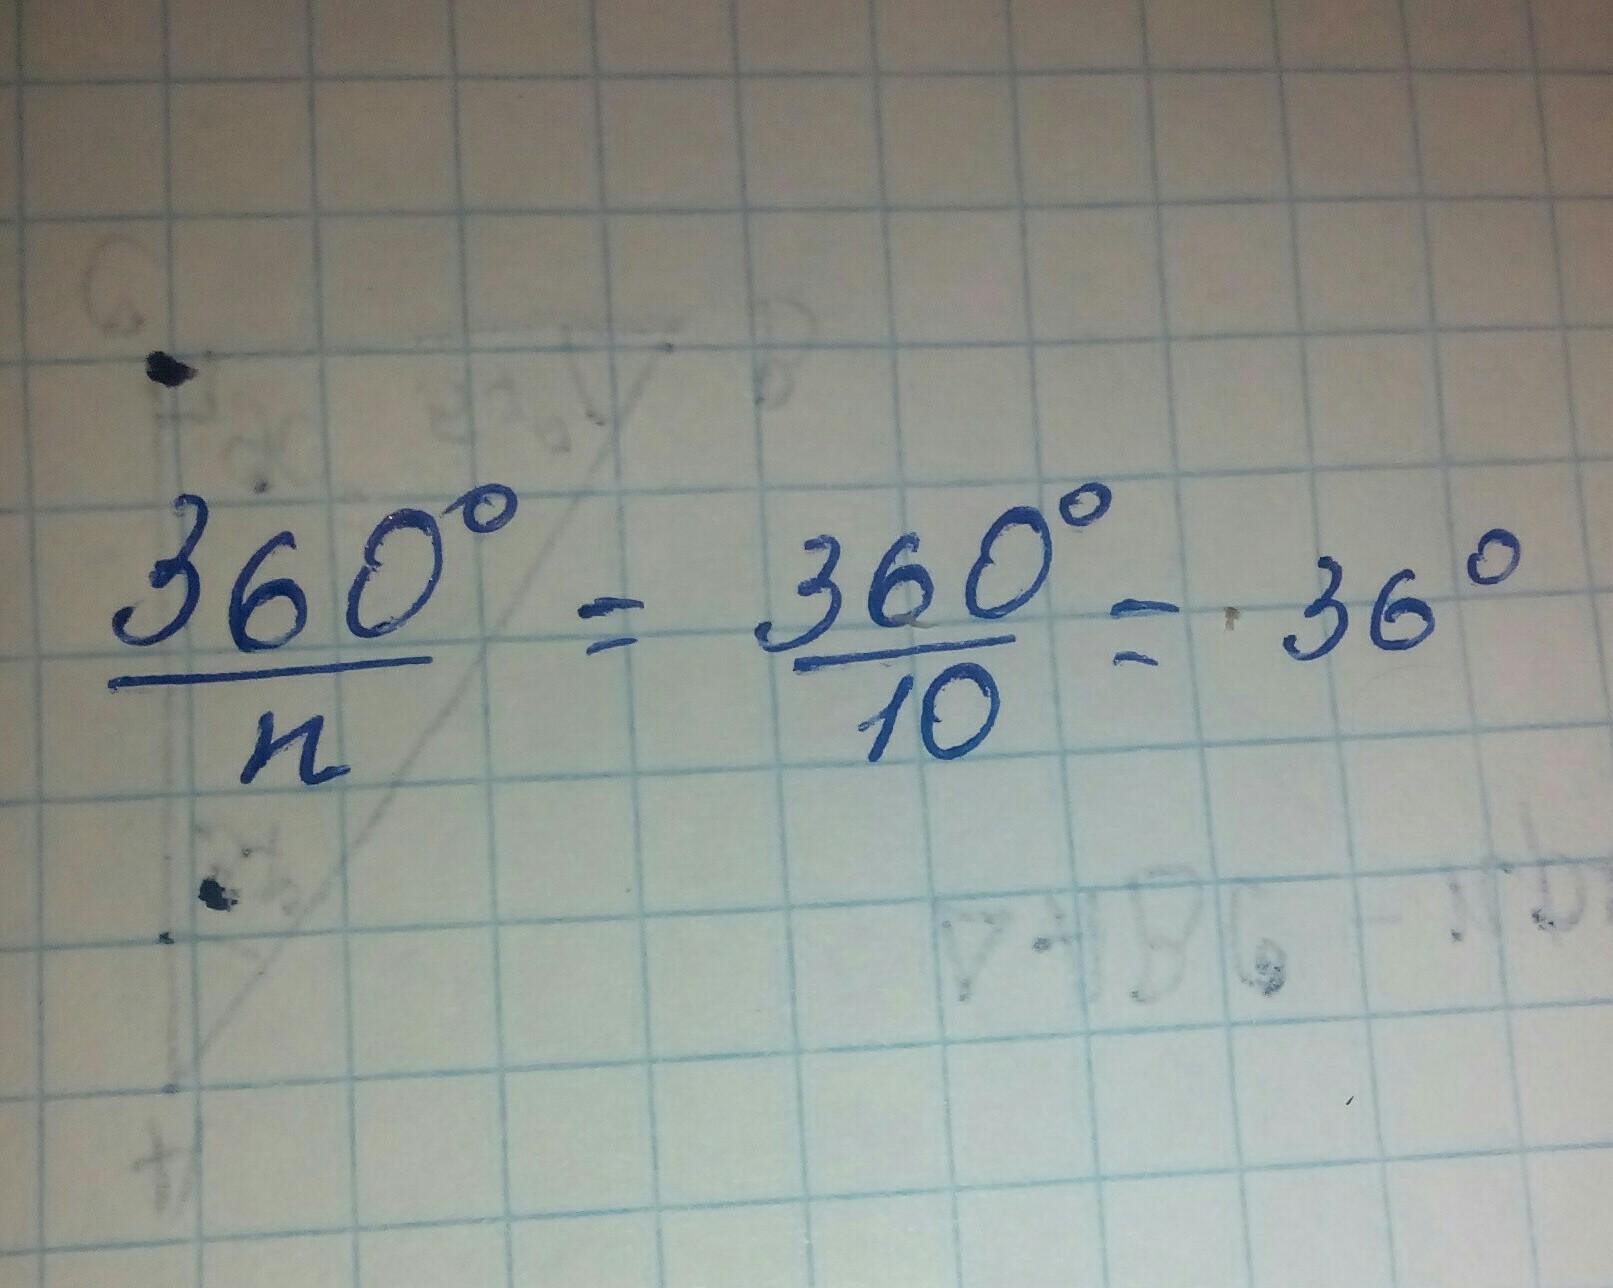 360°/n = 360°/10 = 36°